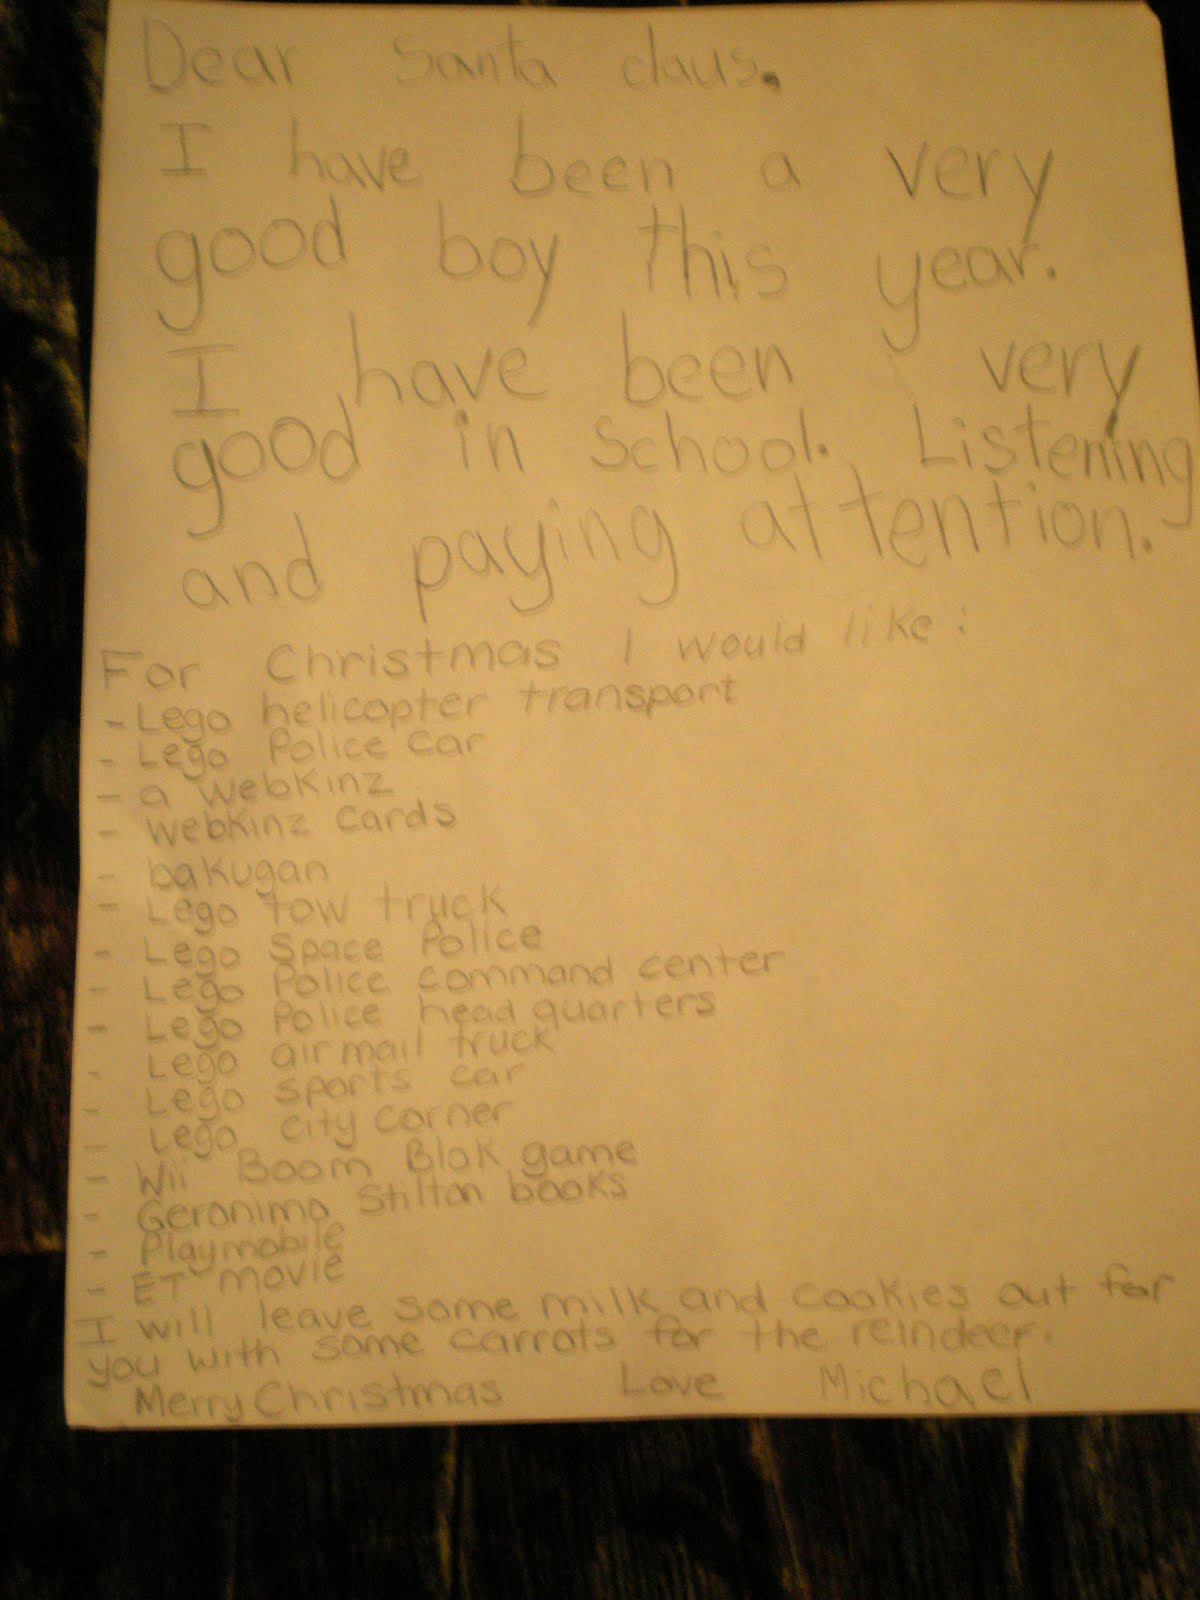 Dear Santa claus.
I have been a very
good boy this year.
I have been very
good in school. Listening
and paying attention.
For Christmas I would like:
- Lego helicopter transport
- Lego Police Car
- a webkinz
- webkinz cards
- bakugan
- Lego tow truck
- Lego Space Police
- Lego Police command center
- Lego Police head quarters
- Lego air mail truck
- Lego sports car
- Lego city corner
- Wii Boom Blok game
- Geronimo Stilton books
- Playmobile
- ET movie
I will leave some milk and cookies out for
you with some carrots for the reindeer.
Merry Christmas Love Michael